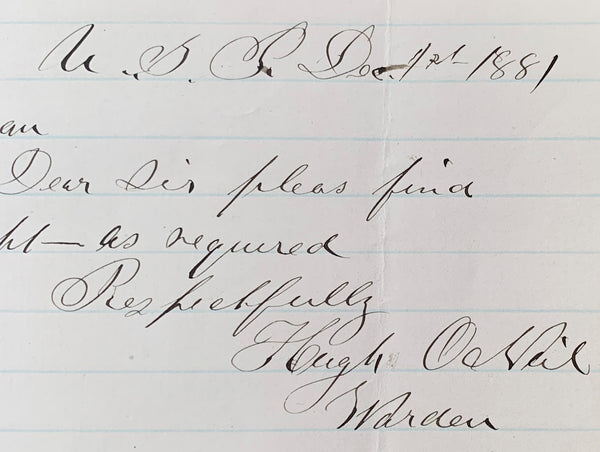 U. S. P. Dec. 1st 1881
an
Dear Sir pleas find
pt - as required
Respectfully
Hugh O'Neil
Warden